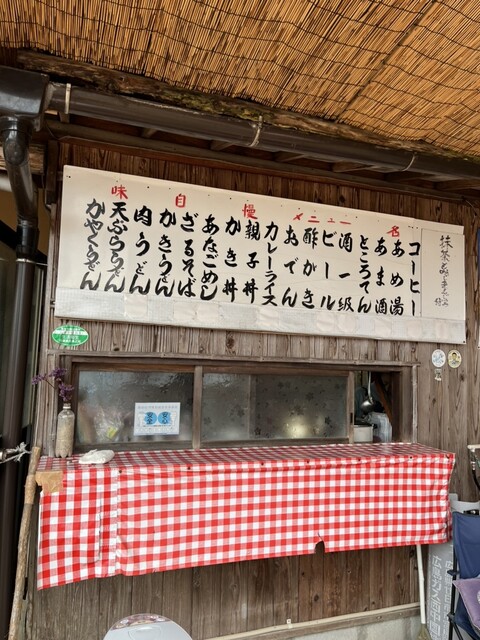 名
メニュー
自慢
味
抹茶
コーヒー
あめ湯
あま酒
ところてん
酒一級
ビール
酢がき
おでん
カレーライス
親子丼
かき丼
あなごめし
ざるそば
かきうどん
肉うどん
天ぷらうどん
かやくうどん
広島ガス